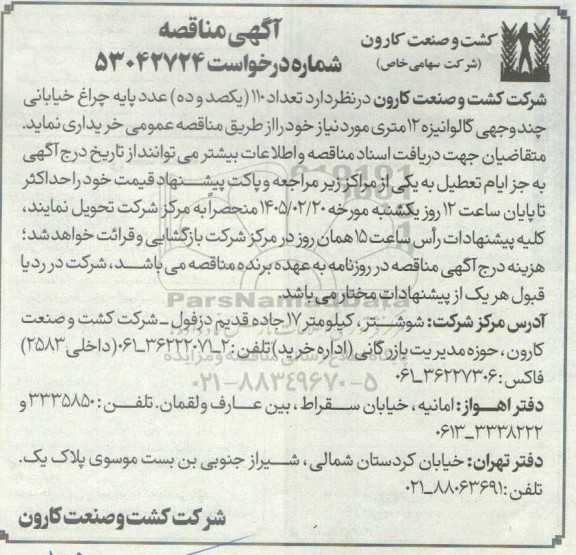 آگهی مناقصه
شماره درخواست ۵۳۰۴۲۷۲۴
کشت و صنعت کارون
(شرکت سهامی خاص)
شرکت کشت و صنعت کارون در نظر دارد تعداد ۱۱۰ (یکصد و ده) عدد پایه چراغ خیابانی
چند وجهی گالوانیزه ۱۲ متری مورد نیاز خود را از طریق مناقصه عمومی خریداری نماید.
متقاضیان جهت دریافت اسناد مناقصه و اطلاعات بیشتر می توانند از تاریخ درج آگهی
به جز ایام تعطیل به یکی از مراکز زیر مراجعه و پاکت پیشنهاد قیمت خود را حداکثر
تا پایان ساعت ۱۲ روز یکشنبه مورخه ۱۴۰۵/۰۲/۲۰ منحصراً به مرکز شرکت تحویل نمایند،
کلیه پیشنهادات رأس ساعت ۱۵ همان روز در مرکز شرکت بازگشایی و قرائت خواهد شد؛
هزینه درج آگهی مناقصه در روزنامه به عهده برنده مناقصه می باشد، شرکت در رد یا
قبول هر یک از پیشنهادات مختار می باشد.
ParsNamadData
آدرس مرکز شرکت: شوشتر، کیلومتر ۱۷ جاده قدیم دزفول ـ شرکت کشت و صنعت
کارون، حوزه مدیریت بازرگانی (اداره خرید) تلفن: ۲_۳۶۲۲۲۰۷۱_۰۶۱ (داخلی ۲۵۸۳)
فاکس: ۳۶۲۲۷۳۰۶_۰۶۱
۰۲۱-۸۸۳۴۹۶۷۰-۵
دفتر اهواز: امانیه، خیابان سقراط، بین عارف و لقمان. تلفن: ۳۳۳۵۸۵۰ و
۳۳۳۸۲۲۲_۰۶۱۳
دفتر تهران: خیابان کردستان شمالی، شیراز جنوبی بن بست موسوی پلاک یک.
تلفن: ۸۸۰۶۳۶۹۱_۰۲۱
شرکت کشت و صنعت کارون